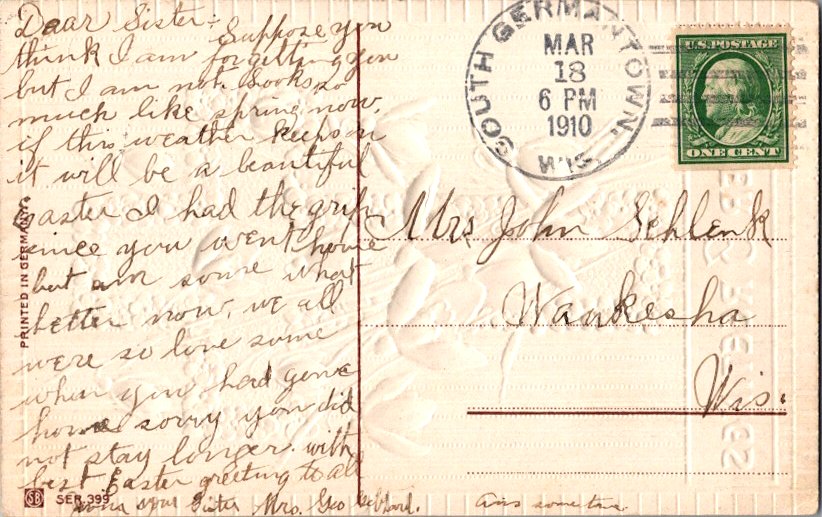 Dear Sister - Suppose you
think I am forgetting you
but I am not. Looks so
much like spring now,
if this weather keeps on
it will be a beautiful
easter I had the grip
since you went home
but am some what
better now, we all
were so lone some
when you had gone
home sorry you did
not stay longer. with
best Easter greeting to all
from your Sister Mrs. Geo
ans some time
PRINTED IN GERMANY
SB SER. 399
SOUTH GERMANTOWN, WIS.
MAR
18
6 PM
1910
U.S. POSTAGE
ONE CENT
Mrs John Schlenk
Waukesha
Wis.